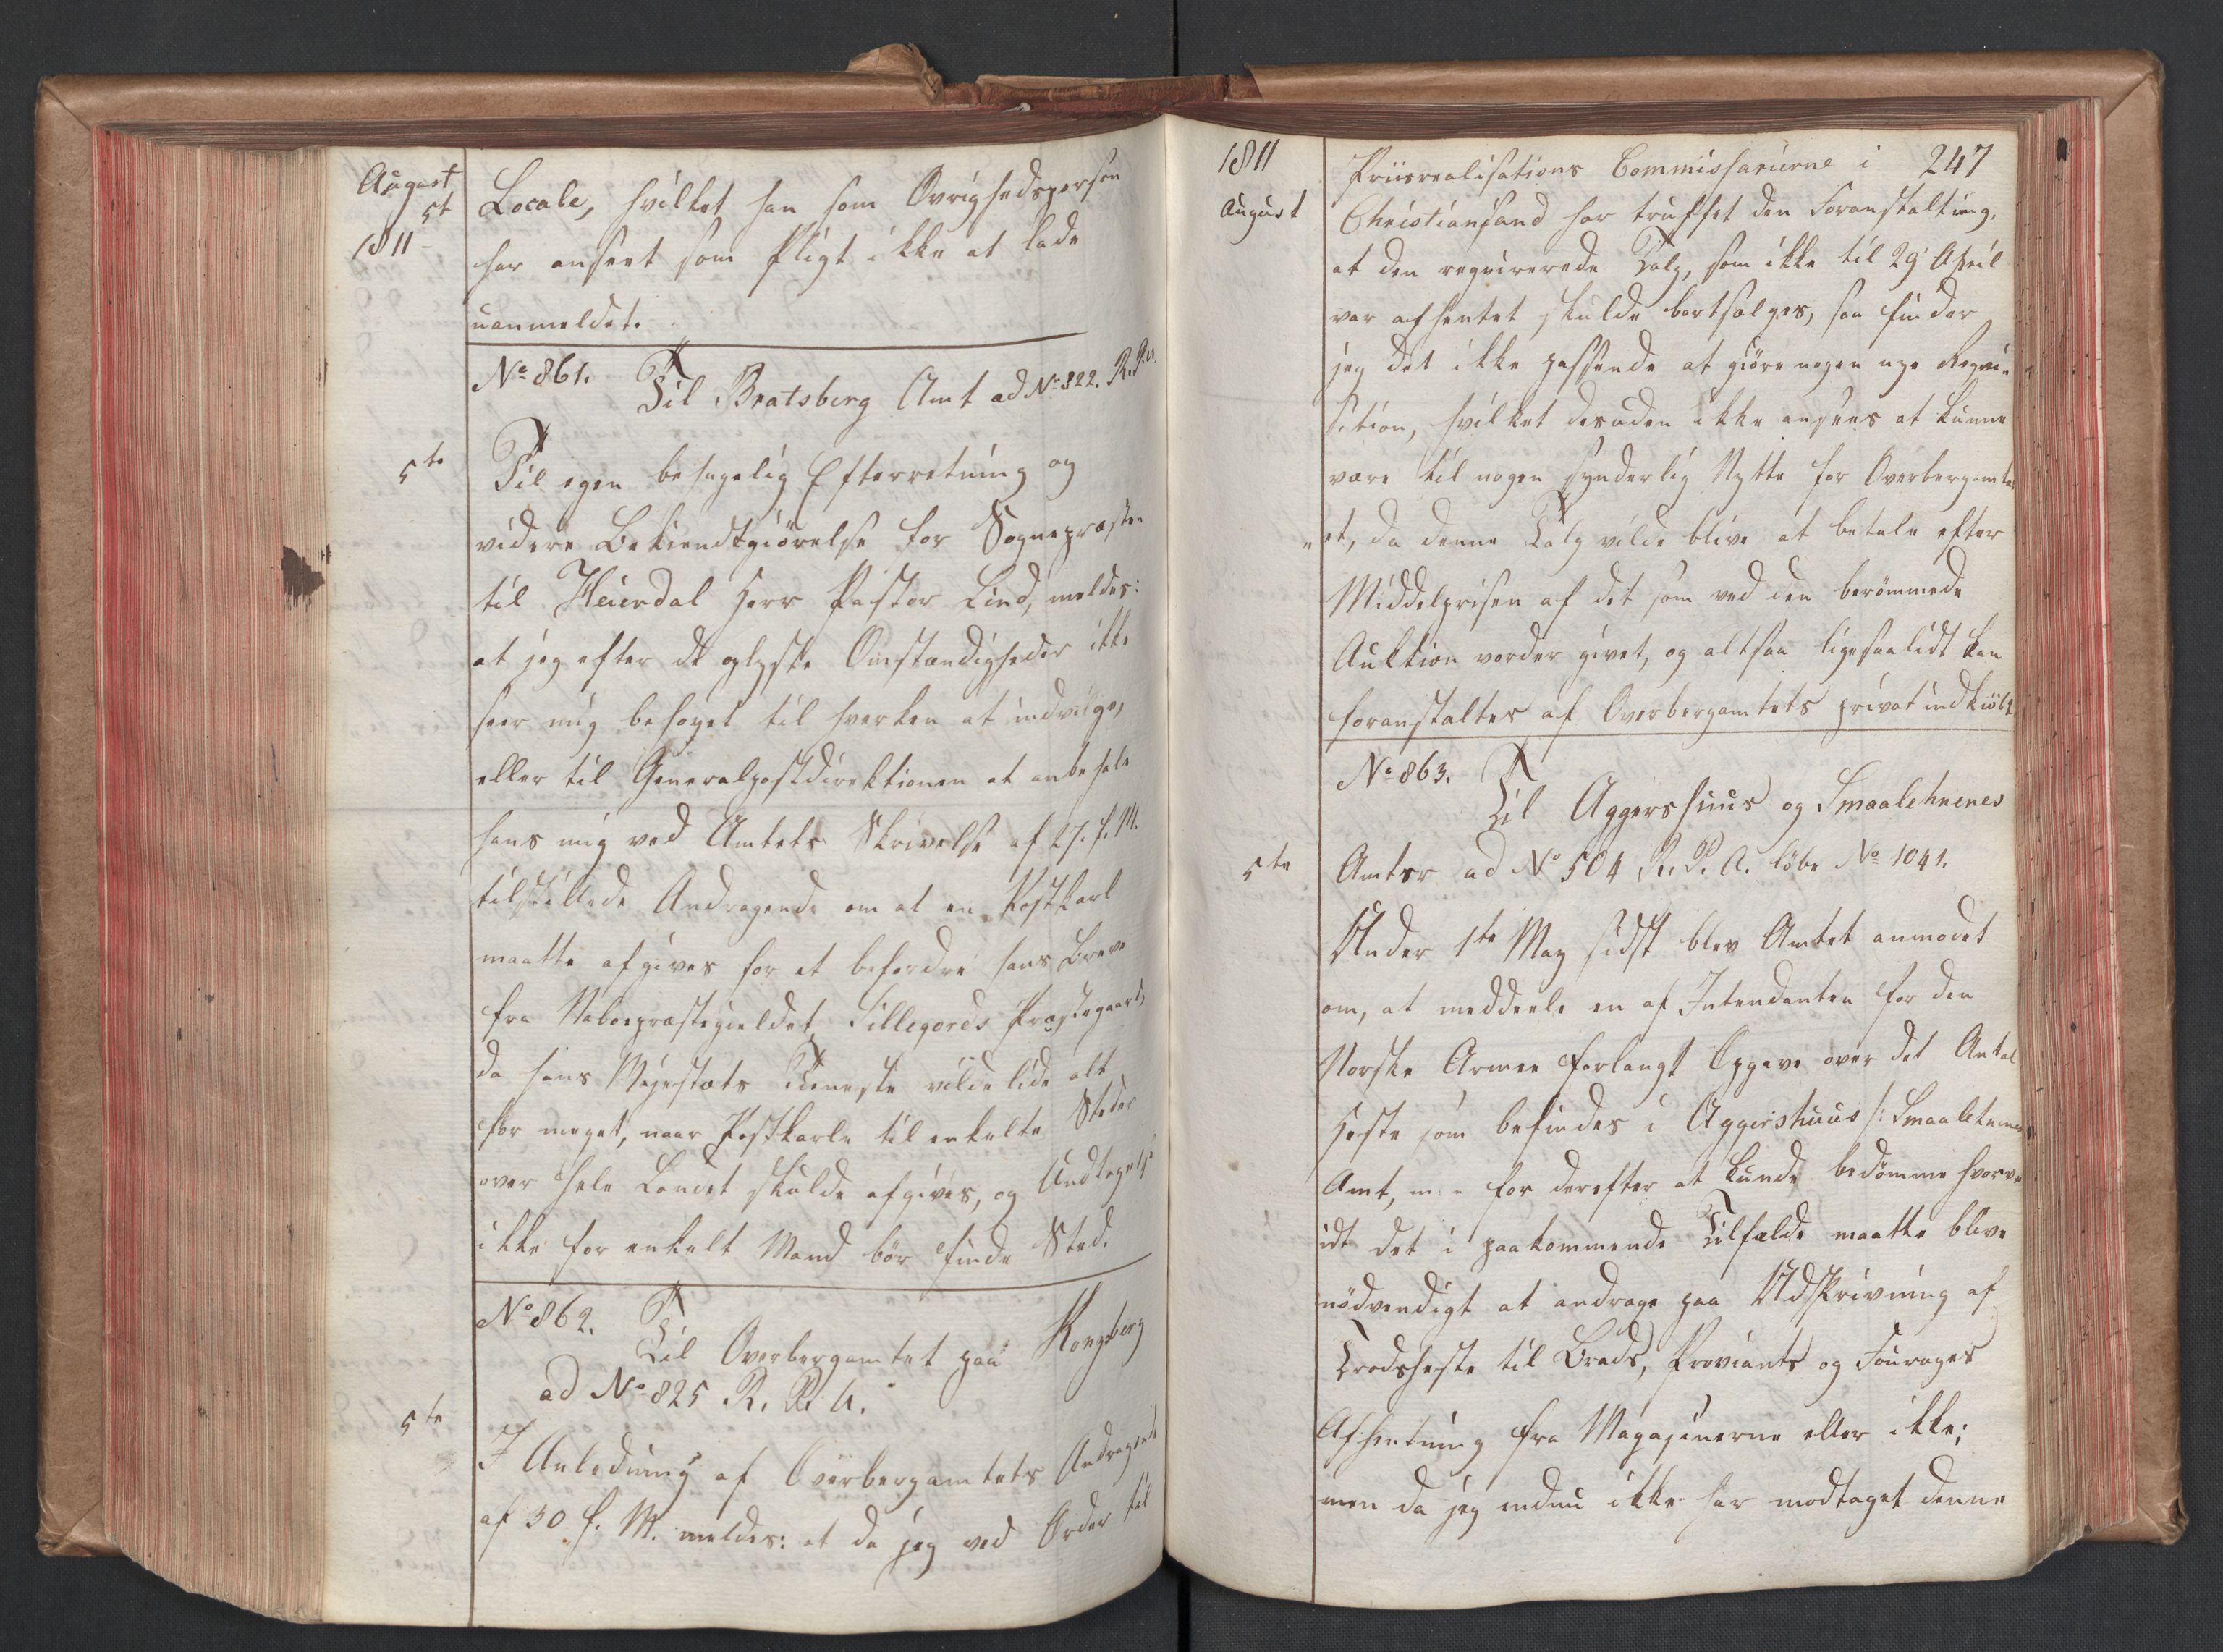 August
5t
1811
Locale, hvilket han som Øvrighedsperson
har anseet som Pligt ikke at lade
uanmeldet.
No 861. Til Bratsberg Amt ad No 822. R. P. A.
5te
Til egen behagelig Efterretning og
videre Bekiendtgiörelse for Sognepræsten
til Heierdal Herr Pastor Lind, meldes:
at jeg efter de oplyste Omstændigheder ikke
seer mig beføyet til hverken at indvilge,
eller til Generalpostdirektionen at anbefale
hans mig ved Amtets Skrivelse af 27. f. M.
tilstillede Andragende om at en Postkarl
maatte afgives for at befordre hans Breve
fra Naboepræstegieldet Sillegords Præstegaard,
da hans Majestæts Tieneste vilde lide alt
for meget, naar Postkarle til enkelte Steder
over hele Landet skulde afgives, og Undtagelse
ikke for enkelt Mand bör finde Sted.
No 862. Til Overbergamtet paa Kongsberg
ad No 825 R. P. A.
5te
I Anledning af Overbergamtets Andragende
af 30 f. M. meldes: at da jeg ved Order til
1811
August
247
Priisrealisations Commissairerne i
Christiansand har truffet den Foranstaltning,
at den reqvirerede Talg, som ikke til 29 April
var afhentet skulde bortsælges, saa finder
jeg det ikke passende at giöre nogen nye Reqvi-
sition, hvilket desuden ikke ansees at kunne
være til nogen synderlig Nytte for Overbergamt-
et, da denne Talg vilde blive at betale efter
Middelprisen af det som ved den berömmede
Auktion vorder givet, og altsaa ligesaalidt kan
foranstaltes af Overbergamtets privat indkiöbt
No 863. Til Aggershuus og Smaalehnenes
5te
Amter ad No 504 R. P. A. löbe No 1041.
Under 1te May sidst blev Amtet anmodet
om, at meddeele en af Intendanten for den
Norske Armee forlangt Opgave over det Antal
Heste som befindes i Aggershuus /: Smaalehnenes
Amt, for derefter at kunde bedömme hvorv-
idt det i paakommende Tilfælde maatte blive
nödvendigt at andrage paa Udskrivning af
Trodsheste til Bröds, Proviants og Fourages
Afhentning fra Magazinerne eller ikke;
men da jeg endnu ikke har modtaget denne